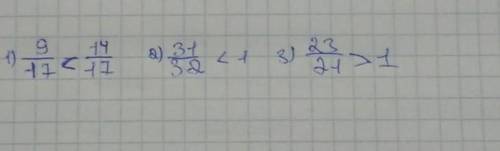 1) 9/17 < 14/17 2) 31/32 < 1 3) 23/21 > 1